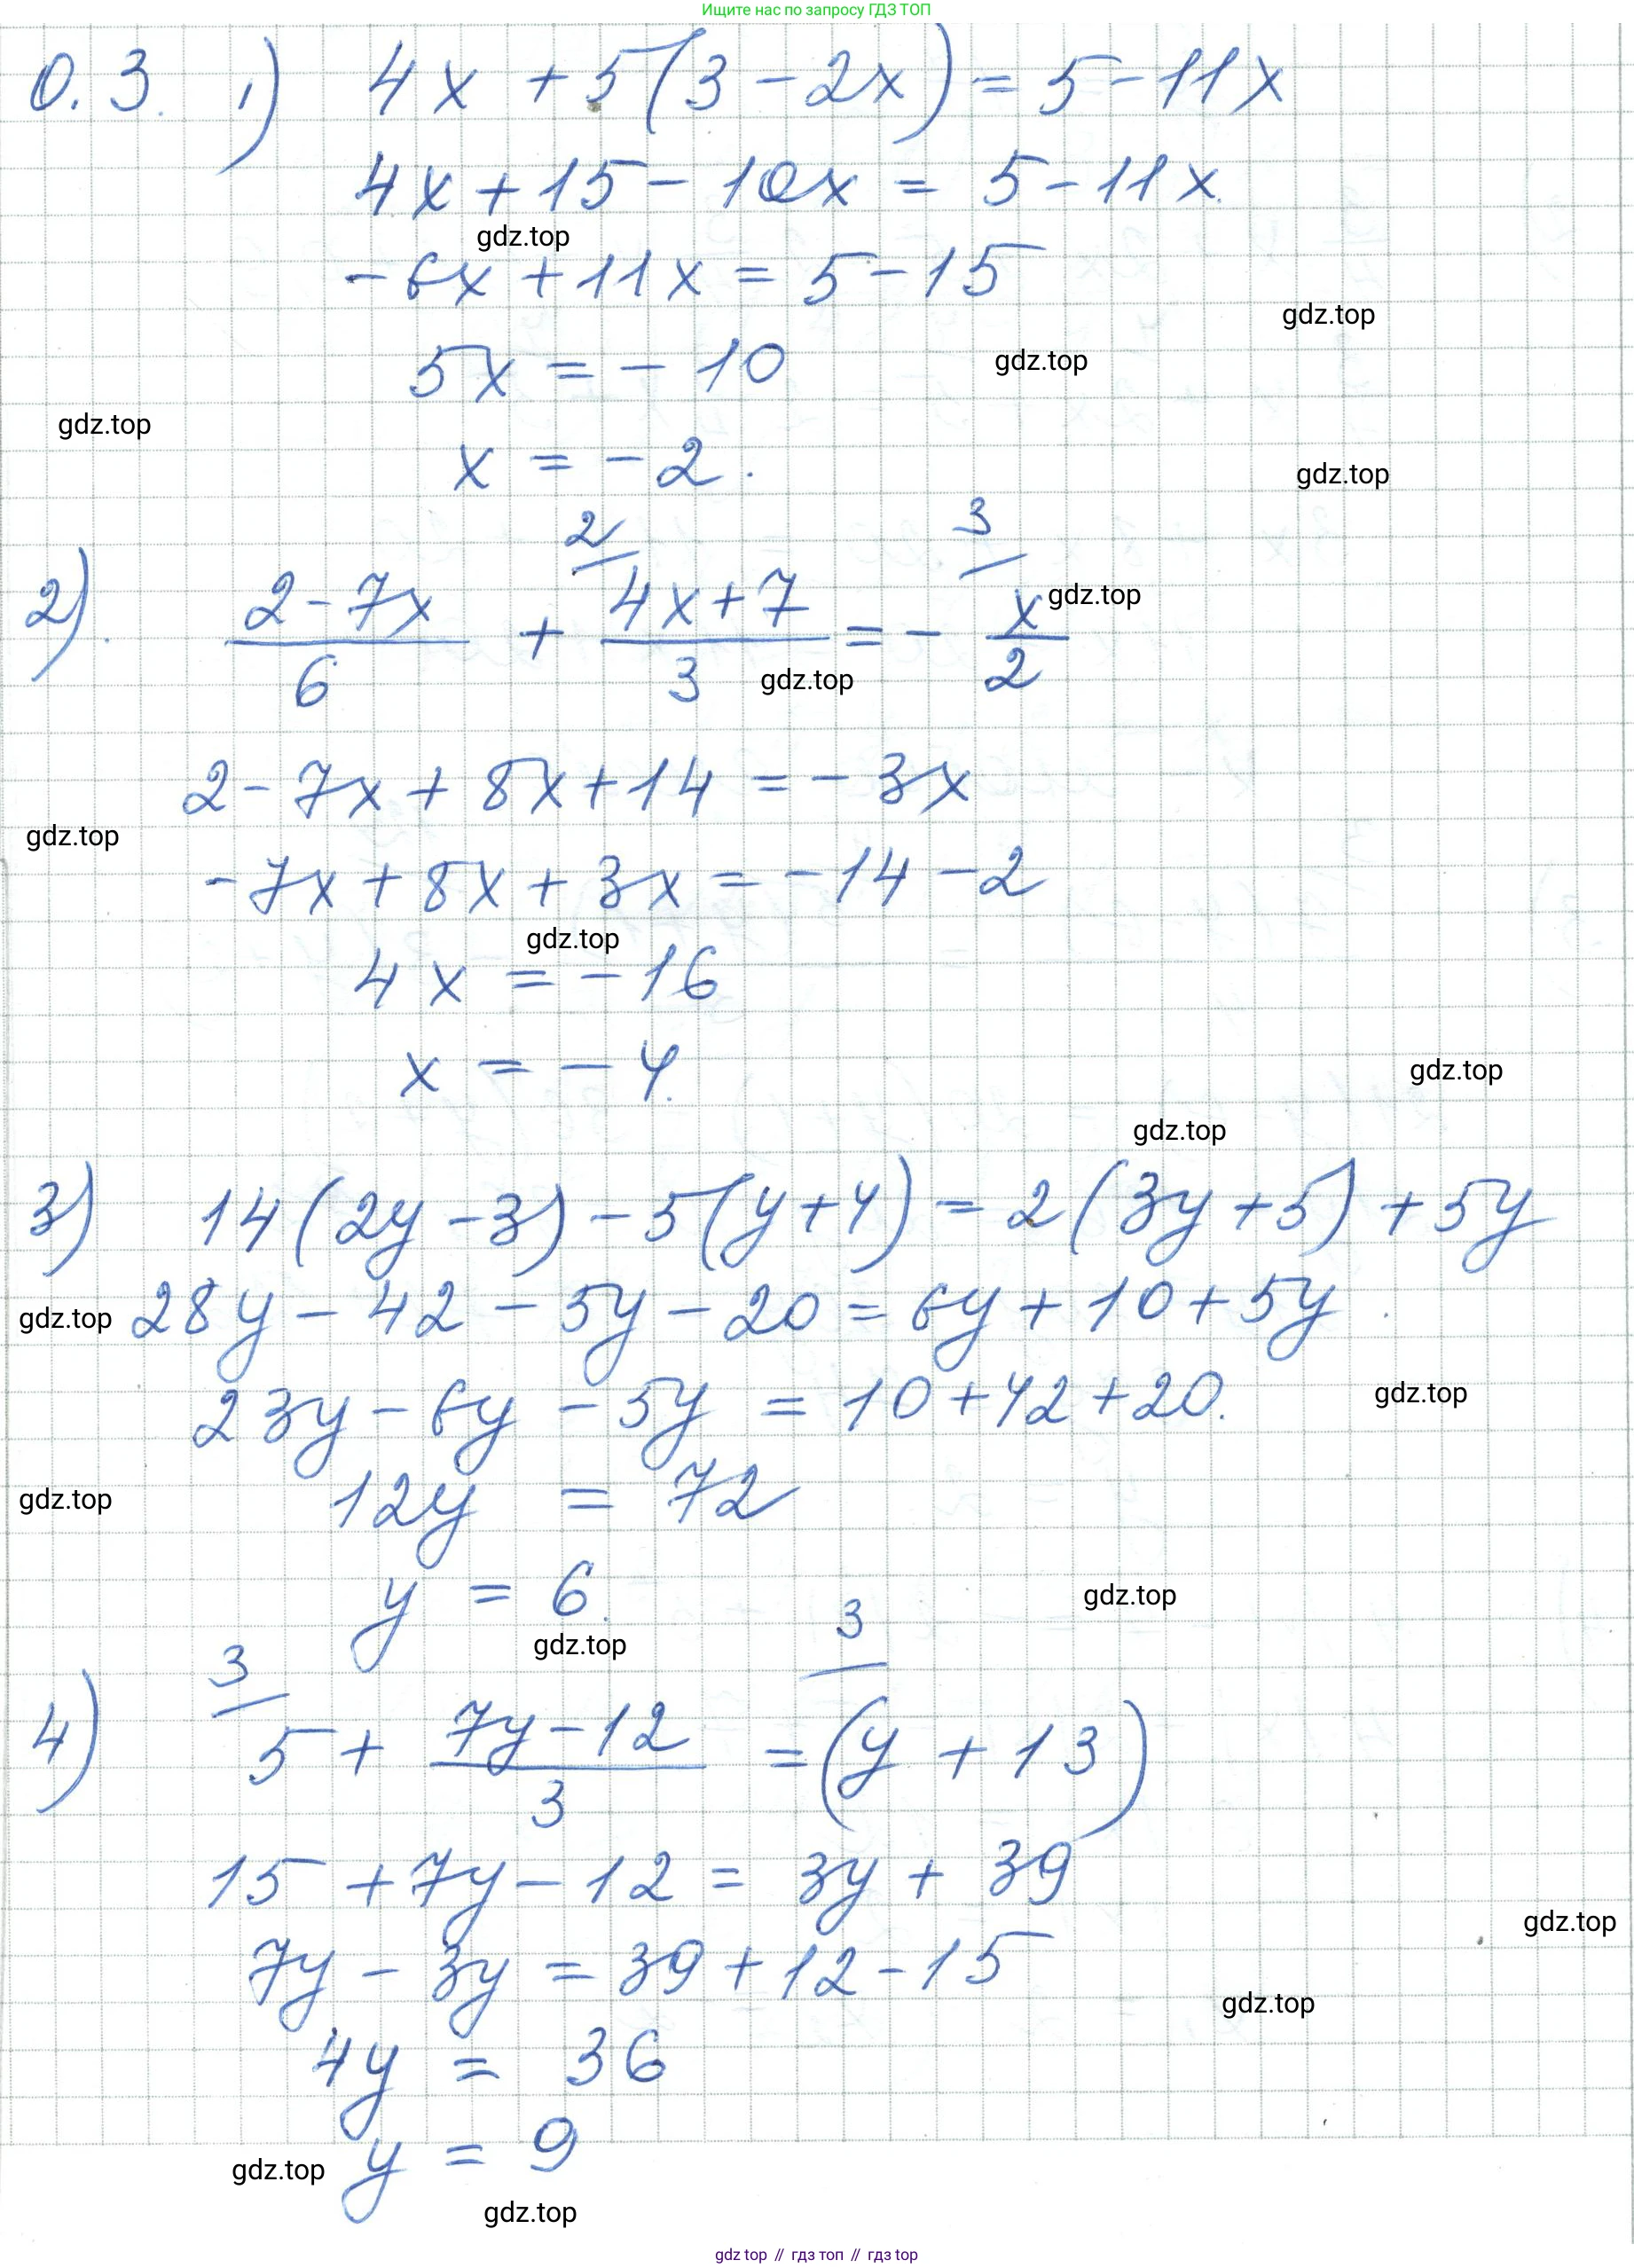 Ищите нас по запросу ГДЗ ТОП
0.3. 1) 4x + 5(3 - 2x) = 5 - 11x
4x + 15 - 10x = 5 - 11x
gdz.top
-6x + 11x = 5 - 15
gdz.top
5x = -10
gdz.top
gdz.top
x = -2.
gdz.top
2 3
2). (2 - 7x)/6 + (4x + 7)/3 = - x/2
gdz.top
gdz.top
2 - 7x + 8x + 14 = -3x
gdz.top
-7x + 8x + 3x = -14 - 2
gdz.top
4x = -16
x = -4.
gdz.top
gdz.top
3) 14(2y - 3) - 5(y + 4) = 2(3y + 5) + 5y
gdz.top
28y - 42 - 5y - 20 = 6y + 10 + 5y
23y - 6y - 5y = 10 + 42 + 20.
gdz.top
gdz.top
12y = 72
y = 6.
gdz.top
gdz.top
3 3
4) 5 + (7y - 12)/3 = (y + 13)
15 + 7y - 12 = 3y + 39
gdz.top
7y - 3y = 39 + 12 - 15
gdz.top
4y = 36
y = 9
gdz.top
gdz.top
gdz top // гдз топ // гдз top